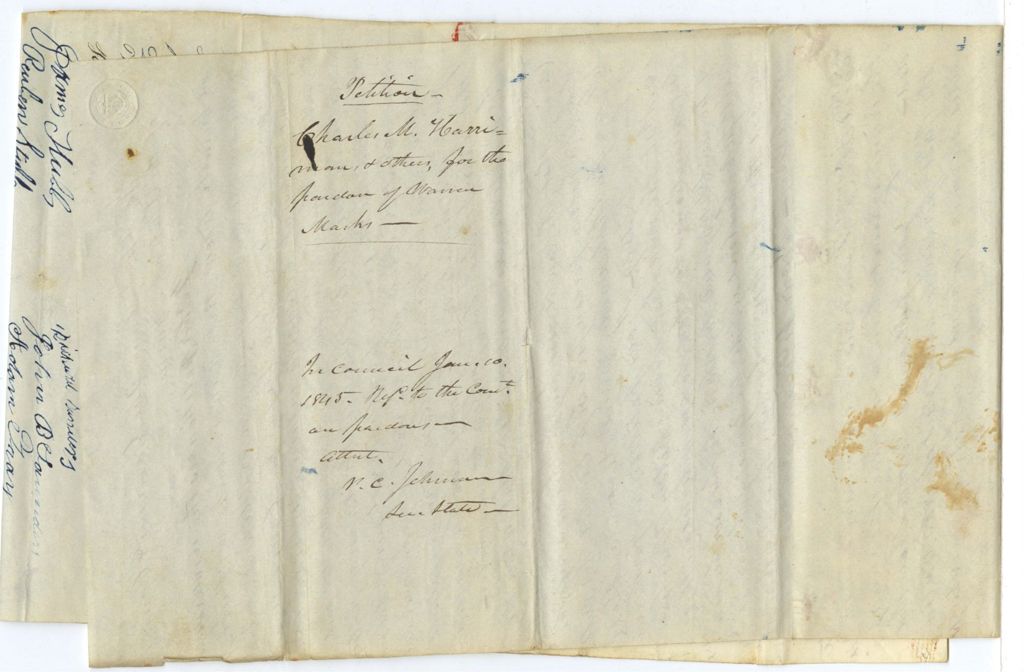 Petition -
Charles M. Harri=
man, & others, for the
pardon of Warren
Marks —
In Council Jan. 10.
1845. Refd. to the Comt.
on pardons —
Attest.
P. C. Johnson
Sec. State —
James
Reuben
Richard
John
Adam